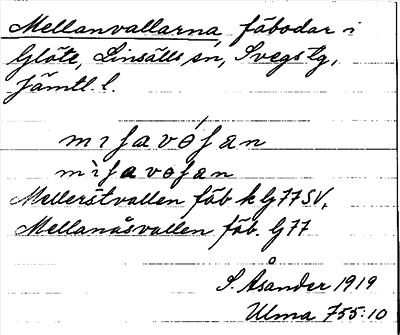 Mellanvallarna, fäbodar i
Glöte, Linsälls sn, Svegs tg,
Jämtl. l.
Mellerstvallen fäb. k G77SV,
Mellanåsvallen fäb. G77
S. Åsander 1919
Ulma 755:10